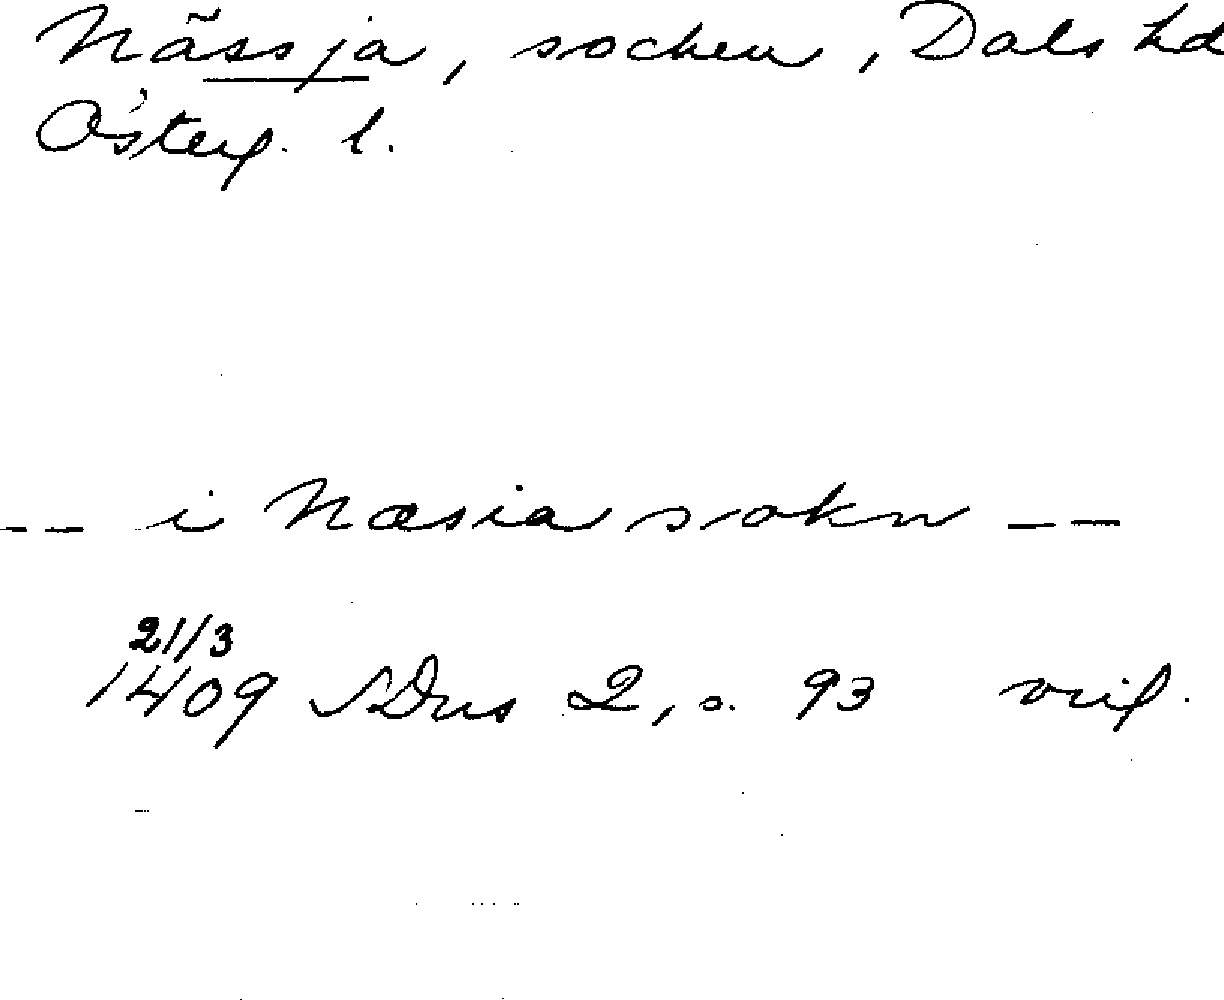 Nässja, socken, Dals hd
Österg. l.
-- i Næsia sokn --
21/3
1409 SDns 2, s. 93 orig.